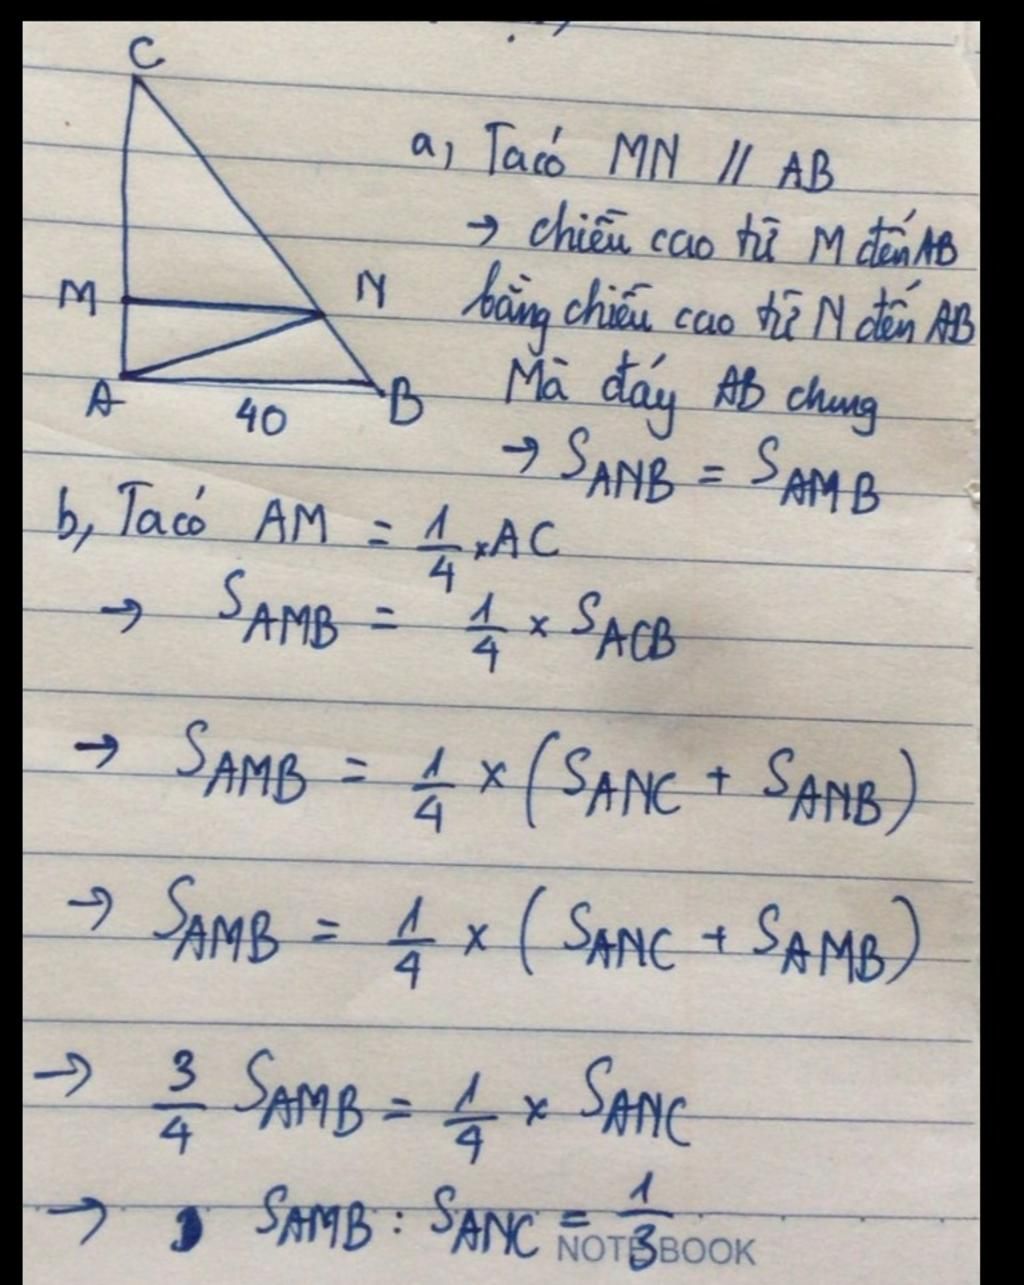 C
a, Ta có MN // AB
→ chiều cao từ M đến AB
M N bằng chiều cao từ N đến AB
A 40 B Mà đáy AB chung
→ S_ANB = S_AMB
b, Ta có AM = 1/4 × AC
→ S_AMB = 1/4 × S_ACB
→ S_AMB = 1/4 × (S_ANC + S_ANB)
→ S_AMB = 1/4 × (S_ANC + S_AMB)
→ 3/4 S_AMB = 1/4 × S_ANC
→ S_AMB : S_ANC = 1/3
NOTEBOOK